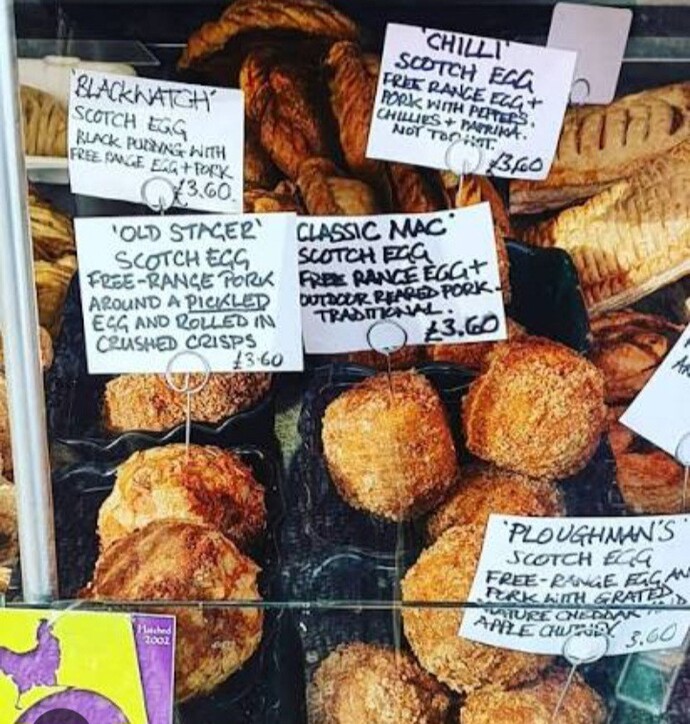 'BLACKWATCH'
SCOTCH EGG
BLACK PUDDING WITH
FREE RANGE EGG + PORK
£3.60
'CHILLI'
SCOTCH EGG
FREE RANGE EGG +
PORK WITH PEPPERS.
CHILLIES + PAPRIKA.
NOT TOO HOT.
£3.60
'OLD STAGER'
SCOTCH EGG
FREE-RANGE PORK
AROUND A PICKLED
EGG AND ROLLED IN
CRUSHED CRISPS
£3.60
CLASSIC MAC'
SCOTCH EGG
FREE RANGE EGG +
OUTDOOR REARED PORK.
TRADITIONAL.
£3.60
'PLOUGHMAN'S'
SCOTCH EGG
FREE-RANGE EGG AN
PORK WITH GRATED
MATURE CHEDDAR
APPLE CHUTNEY
3.60
Hatched
2002